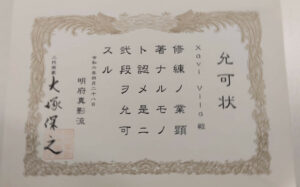 允可状
Xavi Vila 殿
修練ノ業顕
著ナルモノ
ト認メ是ニ
弐段ヲ允可
スル
令和六年四月二十八日
明府真影流
二代宗家
大塚保之